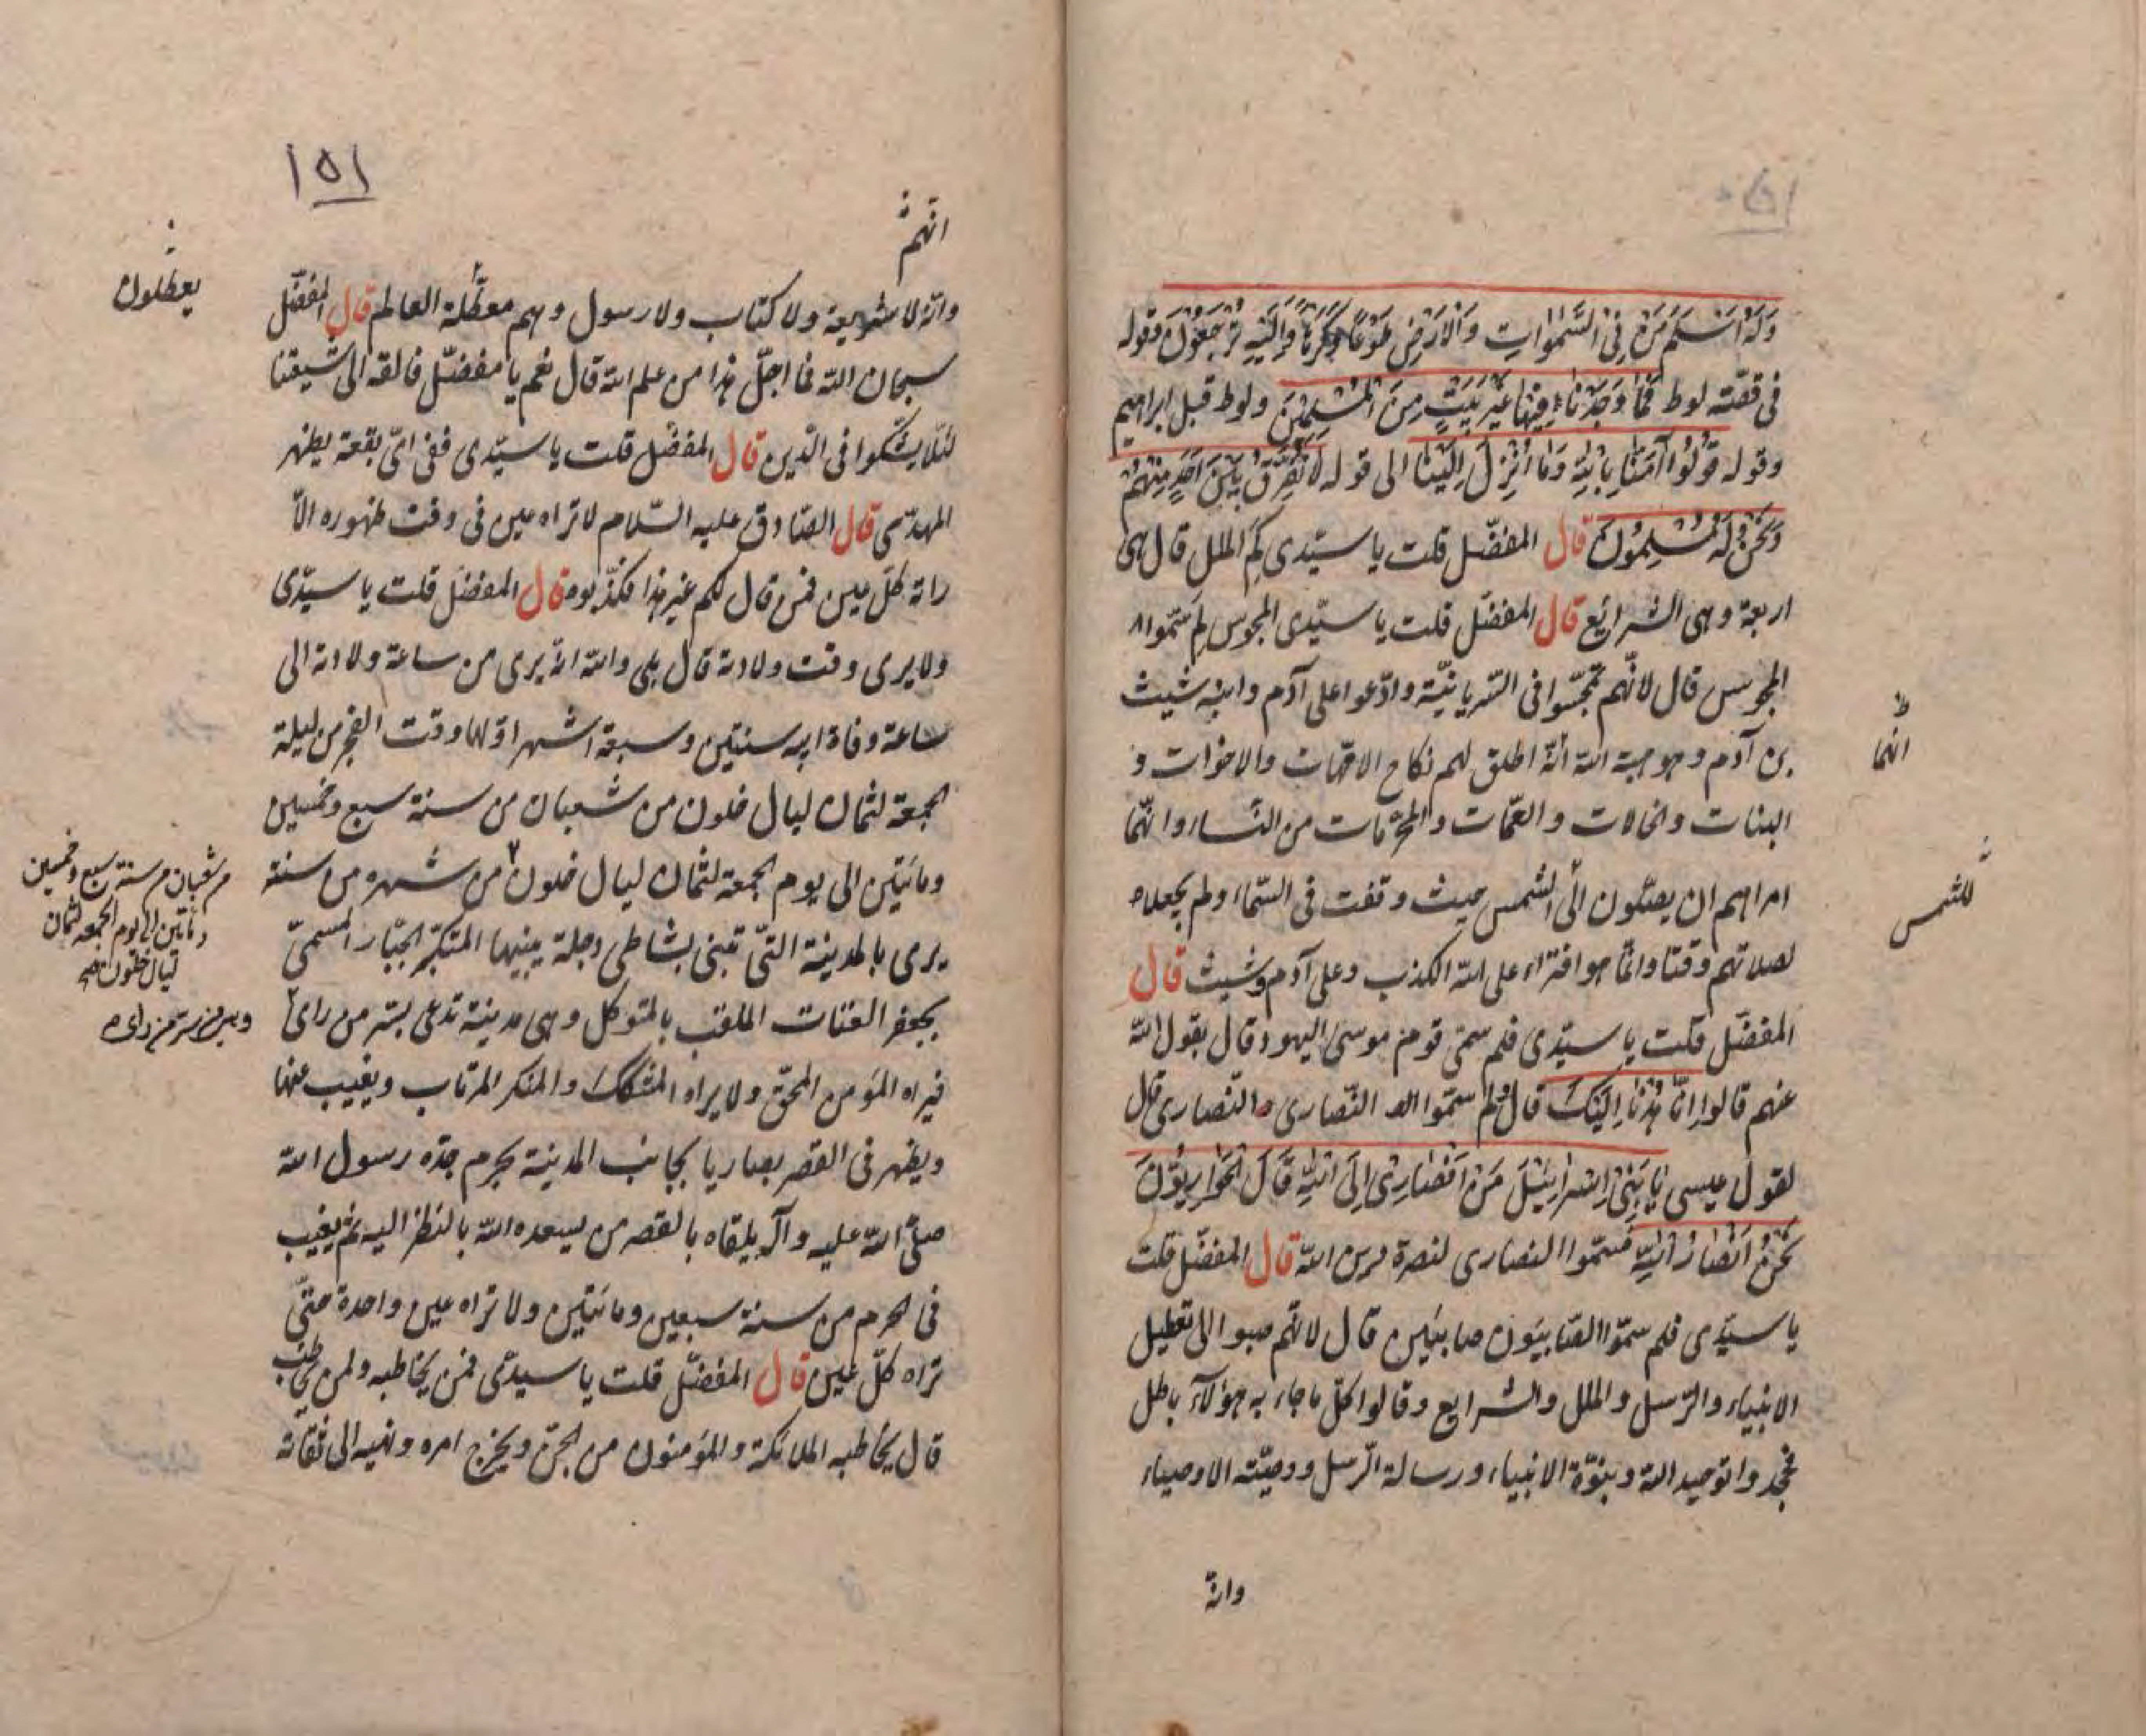 وَلَهُ اَسْلَمَ مَنْ فِی السَّمٰوَاتِ وَالْاَرْضِ طَوْعًا وَكَرْهًا وَاِلَيْهِ تُرْجَعُونَ وقوله
فى قصّته لوط فَمَا وَجَدْنَا فِيهَا غَيْرَ بَيْتٍ مِنَ الْمُسْلِمِينَ ولوط قبل ابراهيم
وقوله قُولُوا آمَنَّا بِاللّٰهِ وَمَا اُنْزِلَ اِلَيْنَا الى قوله لَا نُفَرِّقُ بَيْنَ اَحَدٍ مِنْهُمْ
وَنَحْنُ لَهُ مُسْلِمُونَ قال المفضّل قلت يا سيّدى كم الملل قال هى
اربعة وهى الشرائع قال المفضّل قلت يا سيّدى المجوس لم سمّوا
المجوس قال لانّهم تمجّسوا فى السّريانيّة وادّعوا على آدم وابنه شيث
بن آدم وهو هبة الله انّه اطلق لهم نكاح الامّهات والاخوات و
انما
البنات والخالات والعمّات والمحرّمات من النساء وانّما
امراهم ان يصلّون الى الشمس حيث وقفت فى السّماء ولم يجعلاه
للشمس
لصلاتهم وقتا وانّما هو افتراء على الله الكذب وعلى آدم وشيث قال
المفضّل قلت يا سيّدى فلم سمّى قوم موسى اليهود قال بقول الله
عنهم قالوا اِنَّا هُدْنَا اِلَيْكَ قال ولم سمّوا النّصارى النّصارى قال
لقول عيسى يَا بَنِى اِسْرَائِيْلَ مَنْ اَنْصَارِى اِلَى اللّٰهِ قَالَ الْحَوَارِيُّونَ
نَحْنُ اَنْصَارُ اللّٰهِ فسمّوا النصارى لنصرة دين الله قال المفضّل قلت
يا سيّدى فلم سمّوا الصّابيئون صابئين قال لانّهم صبوا الى تعطيل
الانبياء والرّسل والملل والشرايع وقالوا كلّ ما جاء به هؤلآء باطل
فجحدوا توحيد الله ونبوّة الانبياء ورسالة الرّسل ووصيّته الاوصياء
وانه
١٥١
انهم
وانّه لا شريعة ولا كتاب ولا رسول وهم معطّلة العالم قال المفضّل
يعطلون
سبحان الله فما اجلّ هذا من علم الله قال نعم يا مفضّل فالقه الى شيعتنا
لئلّا يشكّوا فى الدّين قال المفضّل قلت يا سيّدى ففى اىّ بقعة يظهر
المهدّى قال الصّادق عليه السّلام لا تراه عين فى وقت ظهوره الّا
راته كلّ عين فمن قال لكم غير هذا فكذّبوه قال المفضّل قلت يا سيّدى
ولا يرى وقت ولادته قال بلى والله انّه يرى من ساعة ولادته الى
ساعة وفاة ابيه سنتين وسبعة اشهر اوّلها وقت الفجر من ليلة
الجمعة لثمان ليال خلون من شعبان من سنة سبع وخمسين
ومائتين الى يوم الجمعة لثمان ليال خلون من شهره من سنة
من شعبان من سنة سبع وخمسين
ومأتين الى يوم الجمعه لثمان
ليال خلون
يرى بالمدينة التّى تبنى بشاطى دجلة يبنيها المتكبّر الجبّار المسمىّ
بجعفر العتات الملقب بالمتوكل وهى مدينة تدعى بسّر من راى
فيراه المؤمن المحقّ ولا يراه المشكك والمنكر المرتاب ويغيب عنها
ويظهر فى القصر بصاريا بجانب المدينة بحرم جدّه رسول الله
صلّى الله عليه وآله يلقاه بالقصر من يسعده الله بالنظر اليه ثم يغيب
فى الحرم من سنة سبعين ومائتين ولا تراه عين واحدة حتّى
تراه كلّ عين قال المفضّل قلت يا سيدّى فمن يخاطبه ولمن يخاطب
قال يخاطبه الملائكة والمؤمنون من الجنّ ويخرج امره ونهيه الى ثقاته